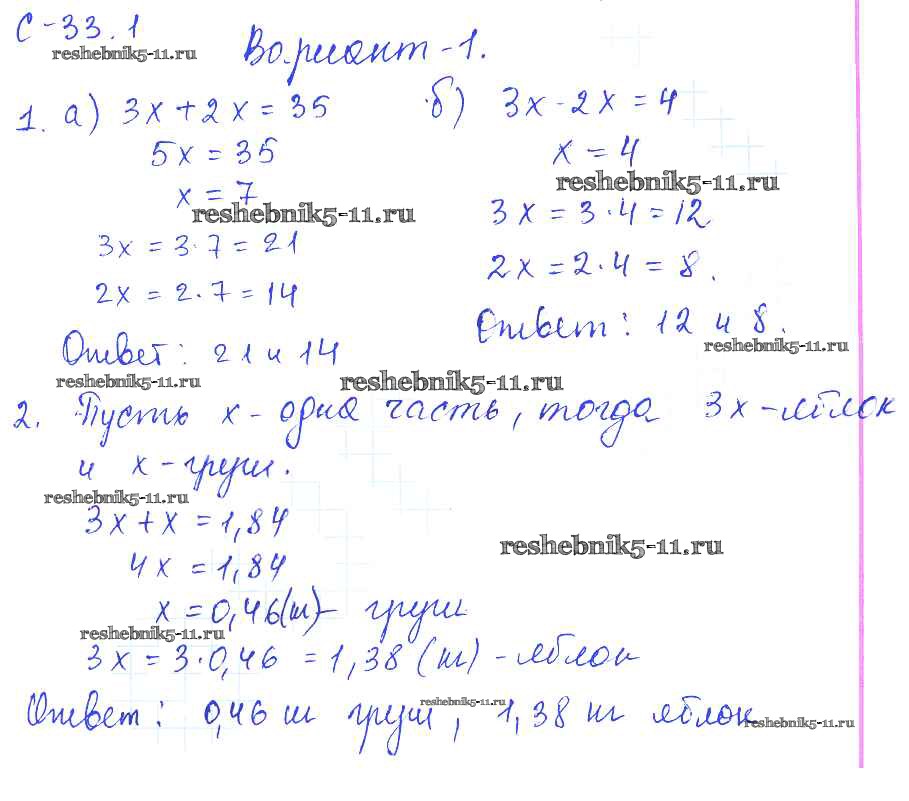 С-33.1
reshebnik5-11.ru
Вариант-1.
1. а) 3x + 2x = 35
5x = 35
x = 7
reshebnik5-11.ru
3x = 3·7 = 21
2x = 2·7 = 14
Ответ: 21 и 14
reshebnik5-11.ru
б) 3x - 2x = 4
x = 4
reshebnik5-11.ru
3x = 3·4 = 12
2x = 2·4 = 8.
Ответ: 12 и 8.
reshebnik5-11.ru
reshebnik5-11.ru
2. Пусть x - одна часть, тогда 3x - яблок
и x - груш.
reshebnik5-11.ru
3x + x = 1,84
reshebnik5-11.ru
4x = 1,84
x = 0,46 (т) - груш
reshebnik5-11.ru
3x = 3·0,46 = 1,38 (т) - яблок
reshebnik5-11.ru
Ответ: 0,46 т груш, 1,38 т яблок
reshebnik5-11.ru